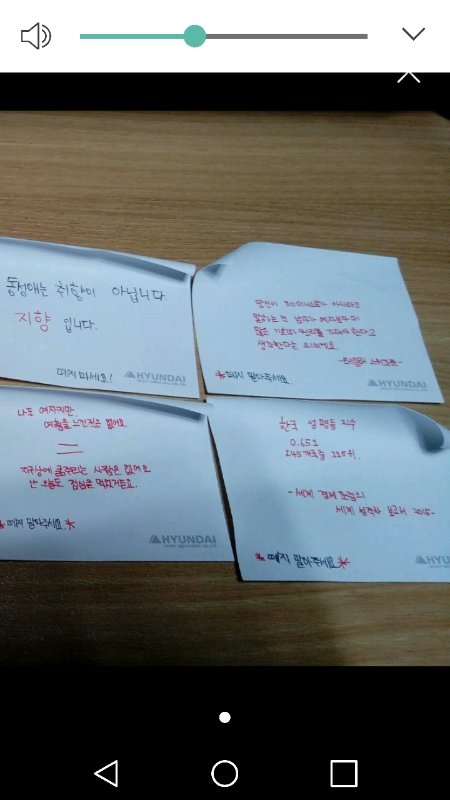 동성애는 취향이 아닙니다
지향 입니다.
떼지 마세요!
HYUNDAI
당신이 페미니스트가 아니라고
말하는 건 남자가 여자보다 더
많은 기회와 권리를 가져야 한다고
생각한다는 의미예요.
-테일러 스위프트-
*떼지 말아주세요
HYUNDAI
나도 여자지만,
여혐을 느낀적은 없어요.
=
지구상에 굶주리는 사람은 없어요
난 오늘도 점심을 먹었거든요.
*떼지 말아주세요*
HYUNDAI
한국 성 평등 지수
0.651
145개국중 115위.
-세계 경제 포럼의
세계 성격차 보고서 2015-
*떼지 말아주세요*
HYUNDAI